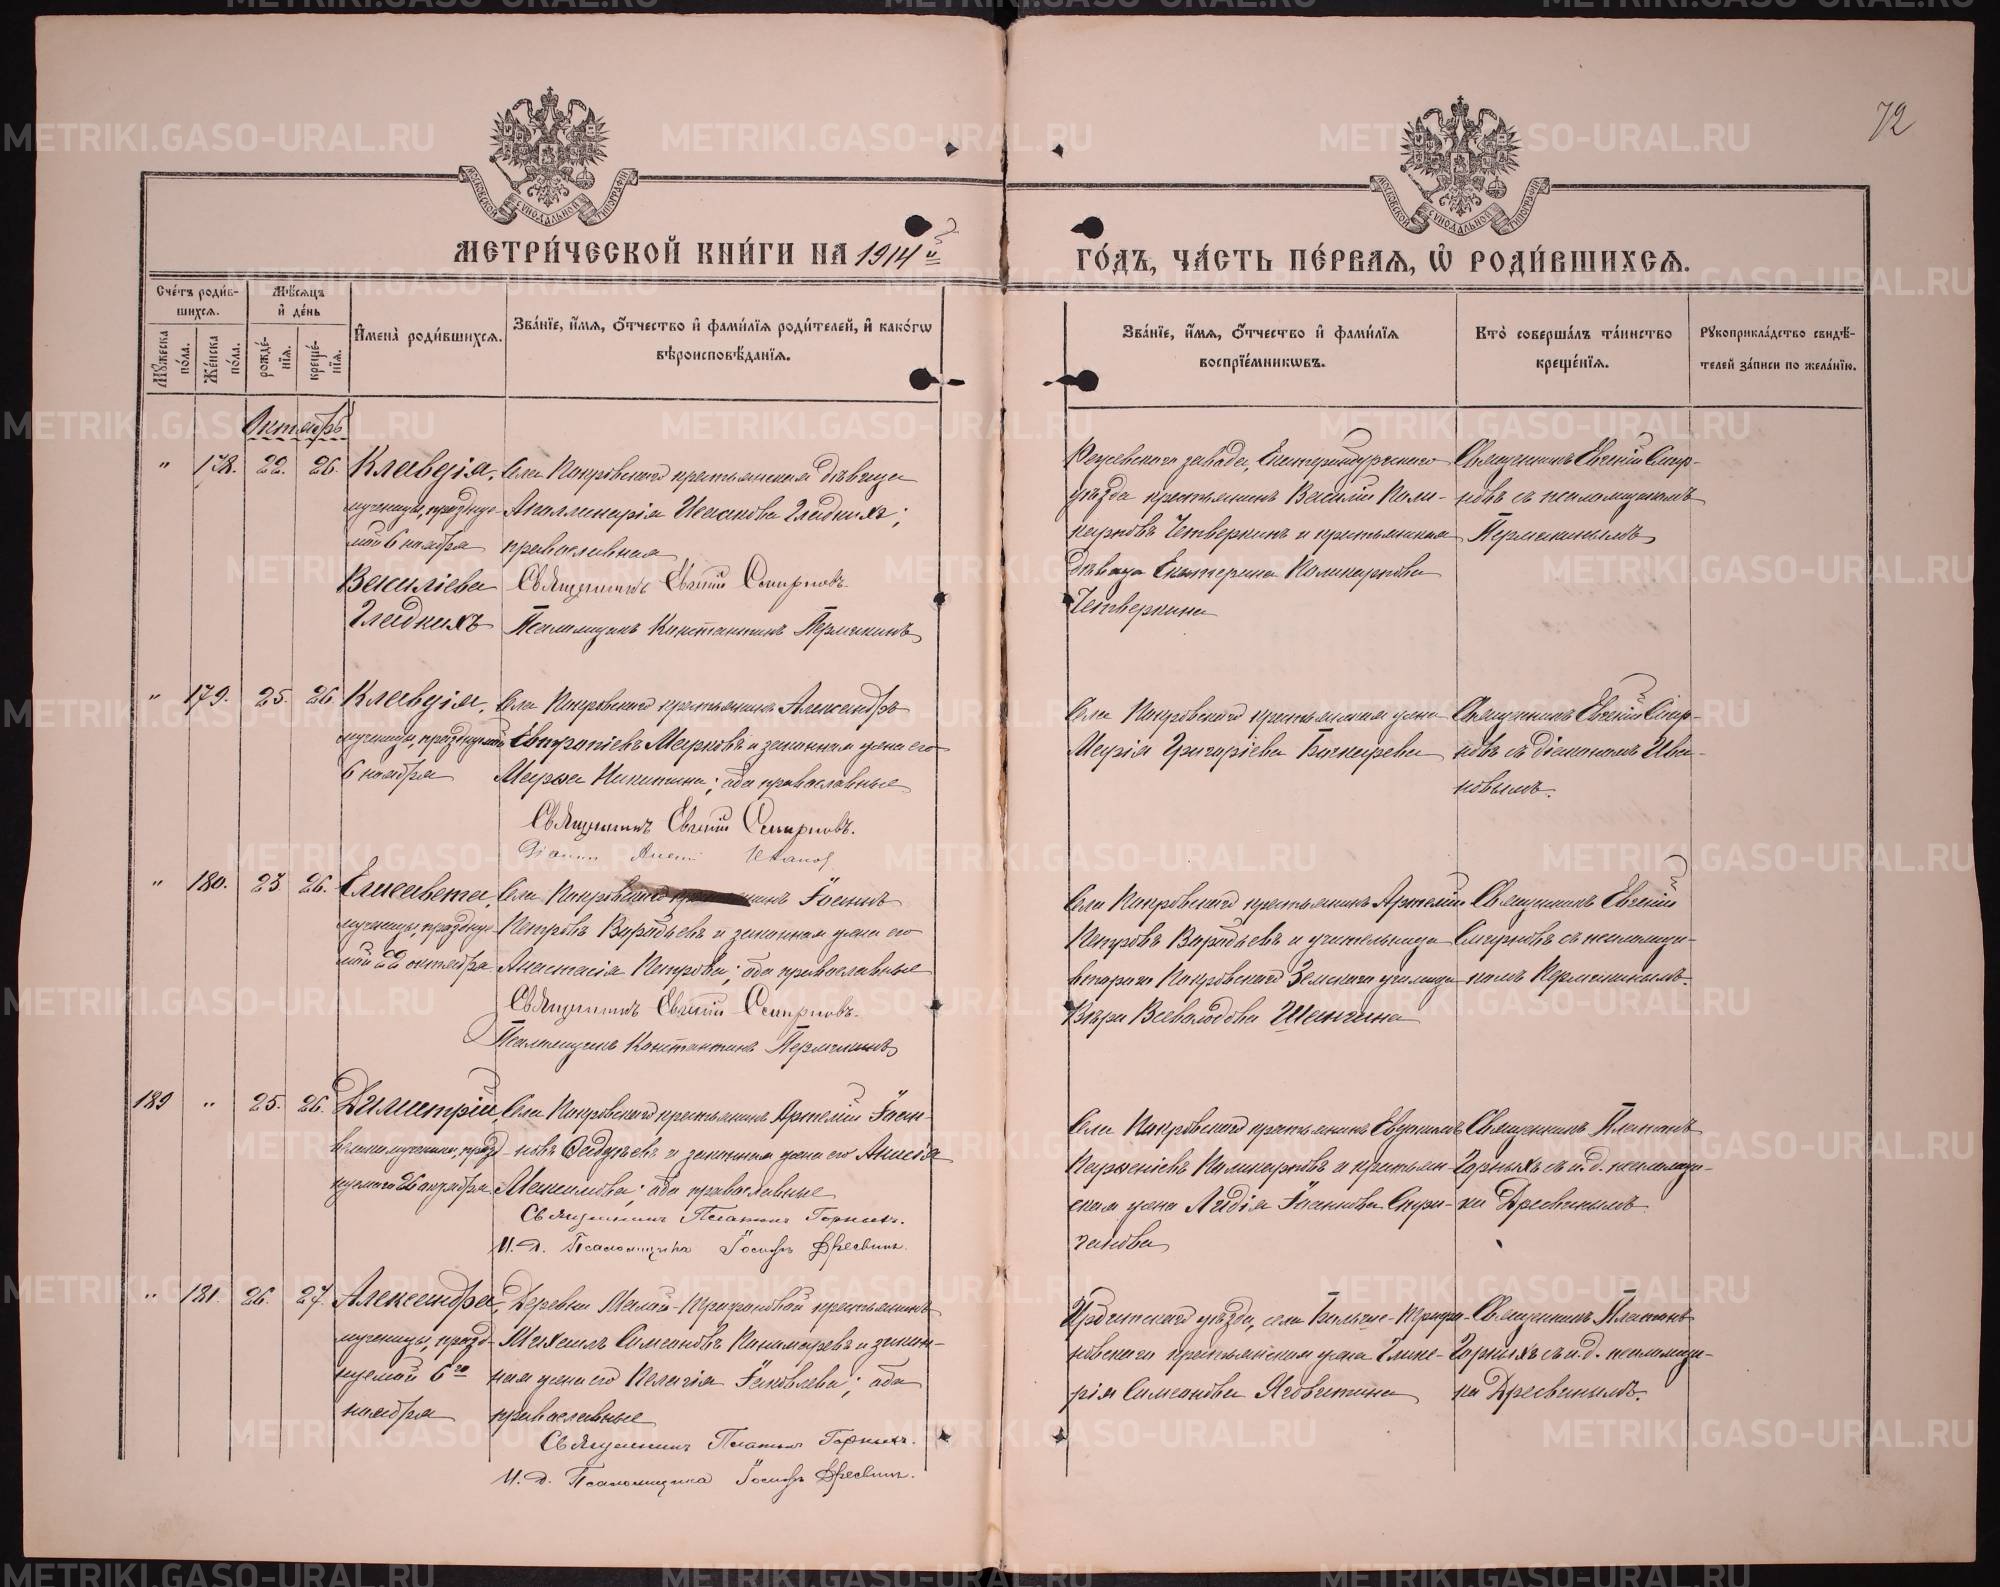 72
МОСКОВСКОЙ СѴНОДАЛЬНОЙ ТИПОГРАФІИ
МОСКОВСКОЙ СѴНОДАЛЬНОЙ ТИПОГРАФІИ
МЕТРИ́ЧЕСКОЙ КНИ́ГИ НА 1914й
ГО́ДЪ, ЧА́СТЬ ПЕ́РВАѦ, Ѡ҆ РОДИ́ВШИХСѦ.
Сче́тъ роди́в-
шихсѧ.
Мѣ́сѧцъ
и҆ де́нь
Мꙋ́жеска
по́ла.
Же́нска
по́ла.
рожде́-
нїѧ.
креще́-
нїѧ.
И҆мена̀ роди́вшихсѧ.
Зва́нїе, и҆́мѧ, ѻ҆́тчество и҆ фами́лїѧ роди́телей, и҆ како́гѡ
вѣроисповѣ́данїѧ.
Зва́нїе, и҆́мѧ, ѻ҆́тчество и҆ фами́лїѧ
воспрїе́мникѡвъ.
Кто̀ соверша́лъ та́инство
креще́нїѧ.
Рꙋкоприкла́дство свидѣ́-
телей за́писи по жела́нїю.
Октябрь
" 178. 22. 26. Клавдія,
мученицы, праздnуе-
мой 6 ноября
Василіева
Гладкихъ
Села Покровскаго крестьянская дѣвица
Аполлинарія Исаакова Гладкихъ;
православная
Священникъ Евгеній Смирновъ.
Псаломщикъ Константинъ Пермякинъ
Режевскаго завода, Екатеринбургскаго
уѣзда крестьянинъ Василій Поли-
карповъ Четверкинъ и крестьянская
дѣвица Екатерина Поликарпова
Четверкина
Священникъ Евгеній Смир-
новъ съ псаломщикомъ
Пермякинымъ
" 179. 25. 26. Клавдія,
мученицы, празднуемой
6 ноября
Села Покровскаго крестьянинъ Александръ
Евтропіевъ Марковъ и законная жена его
Марѳа Никитина; оба православные
Священникъ Евгеній Смирновъ.
Діаконъ Ивановъ
Села Покровскаго крестьянская жена
Марія Григоріева Бачкарева
Священникъ Евгеній Смир-
новъ съ діакономъ Ива-
новымъ.
" 180. 23 26. Елисавета,
мученицы, праздnуе-
мой 22 октября
Села Покровскаго Іоаннъ
Петровъ Воробьевъ и законная жена его
Анастасія Петрова; оба православные
Священникъ Евгеній Смирновъ.
Псаломщикъ Константинъ Пермякинъ
Села Покровскаго крестьянинъ Артемій
Петровъ Воробьевъ и учительница
втораго Покровскаго Земскаго училища
Вѣра Всеволодова Шангина
Священникъ Евгеній
Смирновъ съ псаломщи-
комъ Пермякинымъ.
189 " 25. 26. Димитрій,
великомученика, празд-
нуемаго 26 октября
Села Покровскаго крестьянинъ Артемій Іоан-
новъ Ѳадѣевъ и законная жена его Анисія
Максимова; оба православные
Священникъ Платонъ Горныхъ.
И. д. Псаломщика Іосифъ Дресвинъ.
Села Покровскаго крестьянинъ Евдокимъ
Парѳеніевъ Поликарповъ и крестьян-
ская жена Лидія Іоаннова
Священникъ Платонъ
Горныхъ съ и. д. псаломщи-
ка Дресвинымъ
" 181. 26. 27. Александра,
мученицы, празд-
нуемой 6го
ноября
Деревни Малой-Трифановой крестьянинъ
Михаилъ Симеоновъ Пономаревъ и закон-
ная жена его Пелагія Іаковлева; оба
православные
Священникъ Платонъ Горныхъ.
И. д. Псаломщика Іосифъ Дресвинъ.
Ирбитскаго уѣзда, села Больше-Трифо-
новскаго крестьянская жена Глике-
рія Симеонова Яговитина
Священникъ Платонъ
Горныхъ съ и. д. псаломщи-
ка Дресвинымъ.
METRIKI.GASO-URAL.RU